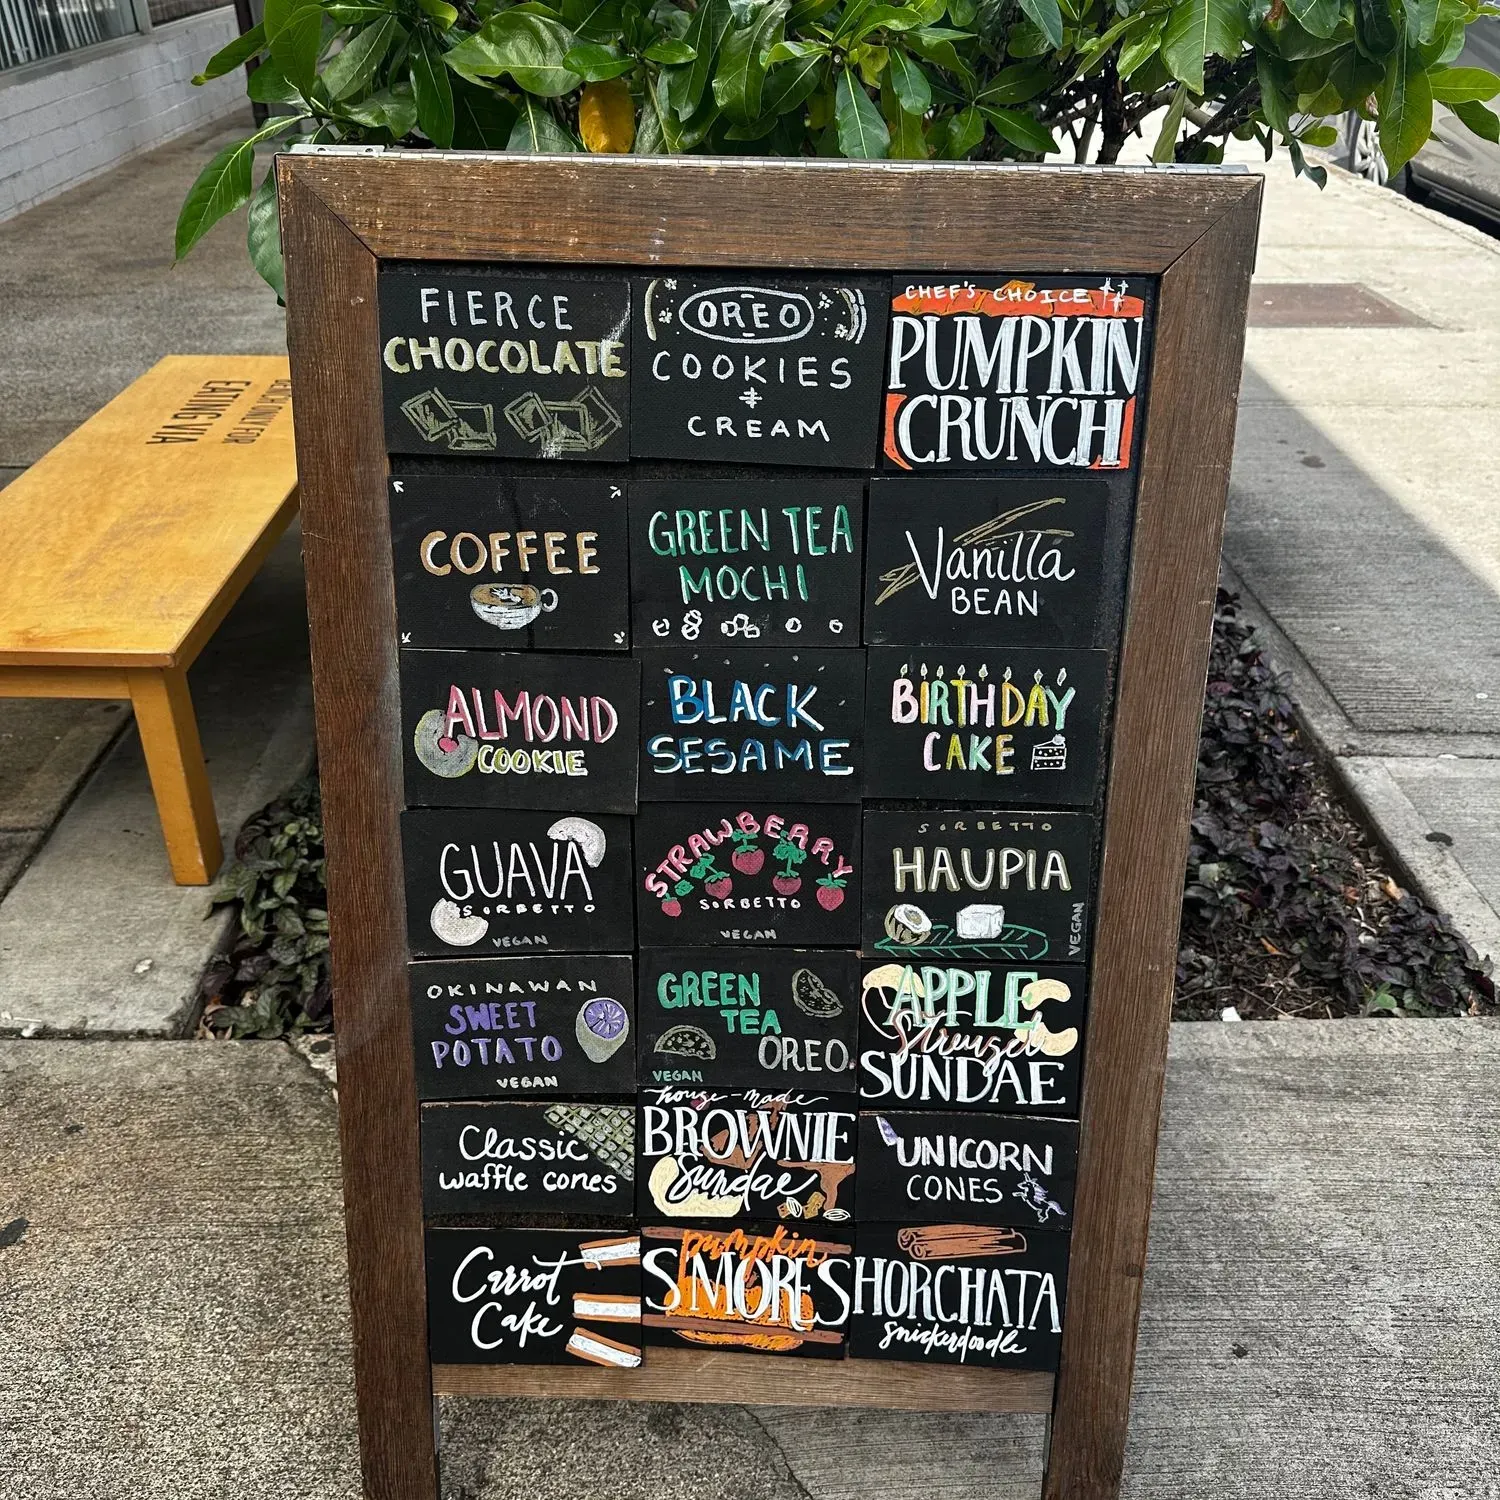 FIERCE
CHOCOLATE
OREO
COOKIES
&
CREAM
CHEF'S CHOICE
PUMPKIN
CRUNCH
COFFEE
GREEN TEA
MOCHI
Vanilla
BEAN
ALMOND
COOKIE
BLACK
SESAME
BIRTHDAY
CAKE
GUAVA
SORBETTO
VEGAN
STRAWBERRY
SORBETTO
VEGAN
SORBETTO
HAUPIA
VEGAN
OKINAWAN
SWEET
POTATO
VEGAN
GREEN
TEA
OREO
VEGAN
APPLE
Streusel
SUNDAE
Classic
waffle cones
house-made
BROWNIE
Sundae
UNICORN
CONES
Carrot
Cake
pumpkin
S'MORES
HORCHATA
snickerdoodle
ONLY FOR
EATING VIA